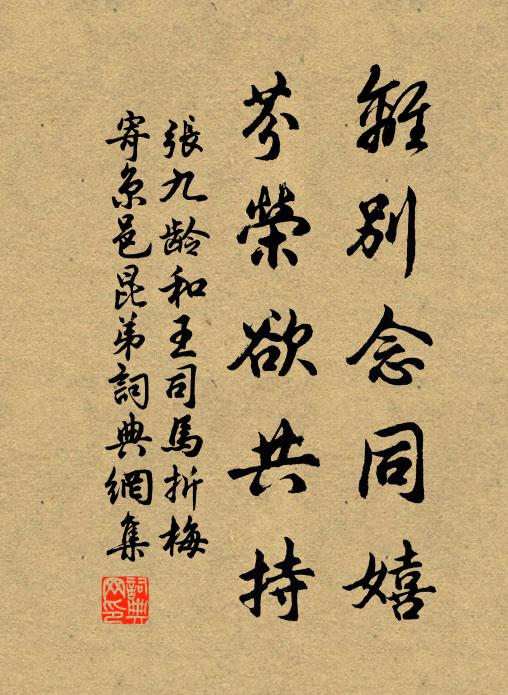 離別念同嬉
芬榮欲共持
張九齡和王司馬折梅
寄京邑昆弟詞典網集
詞典网印